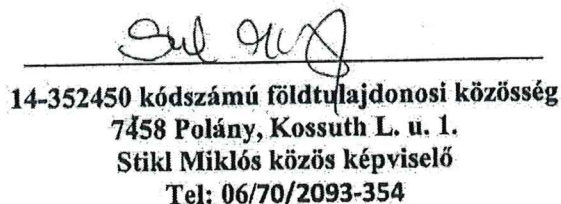 14-352450 kódszámú földtulajdonosi közösség
7458 Polány, Kossuth L. u. 1.
Stikl Miklós közös képviselő
Tel: 06/70/2093-354